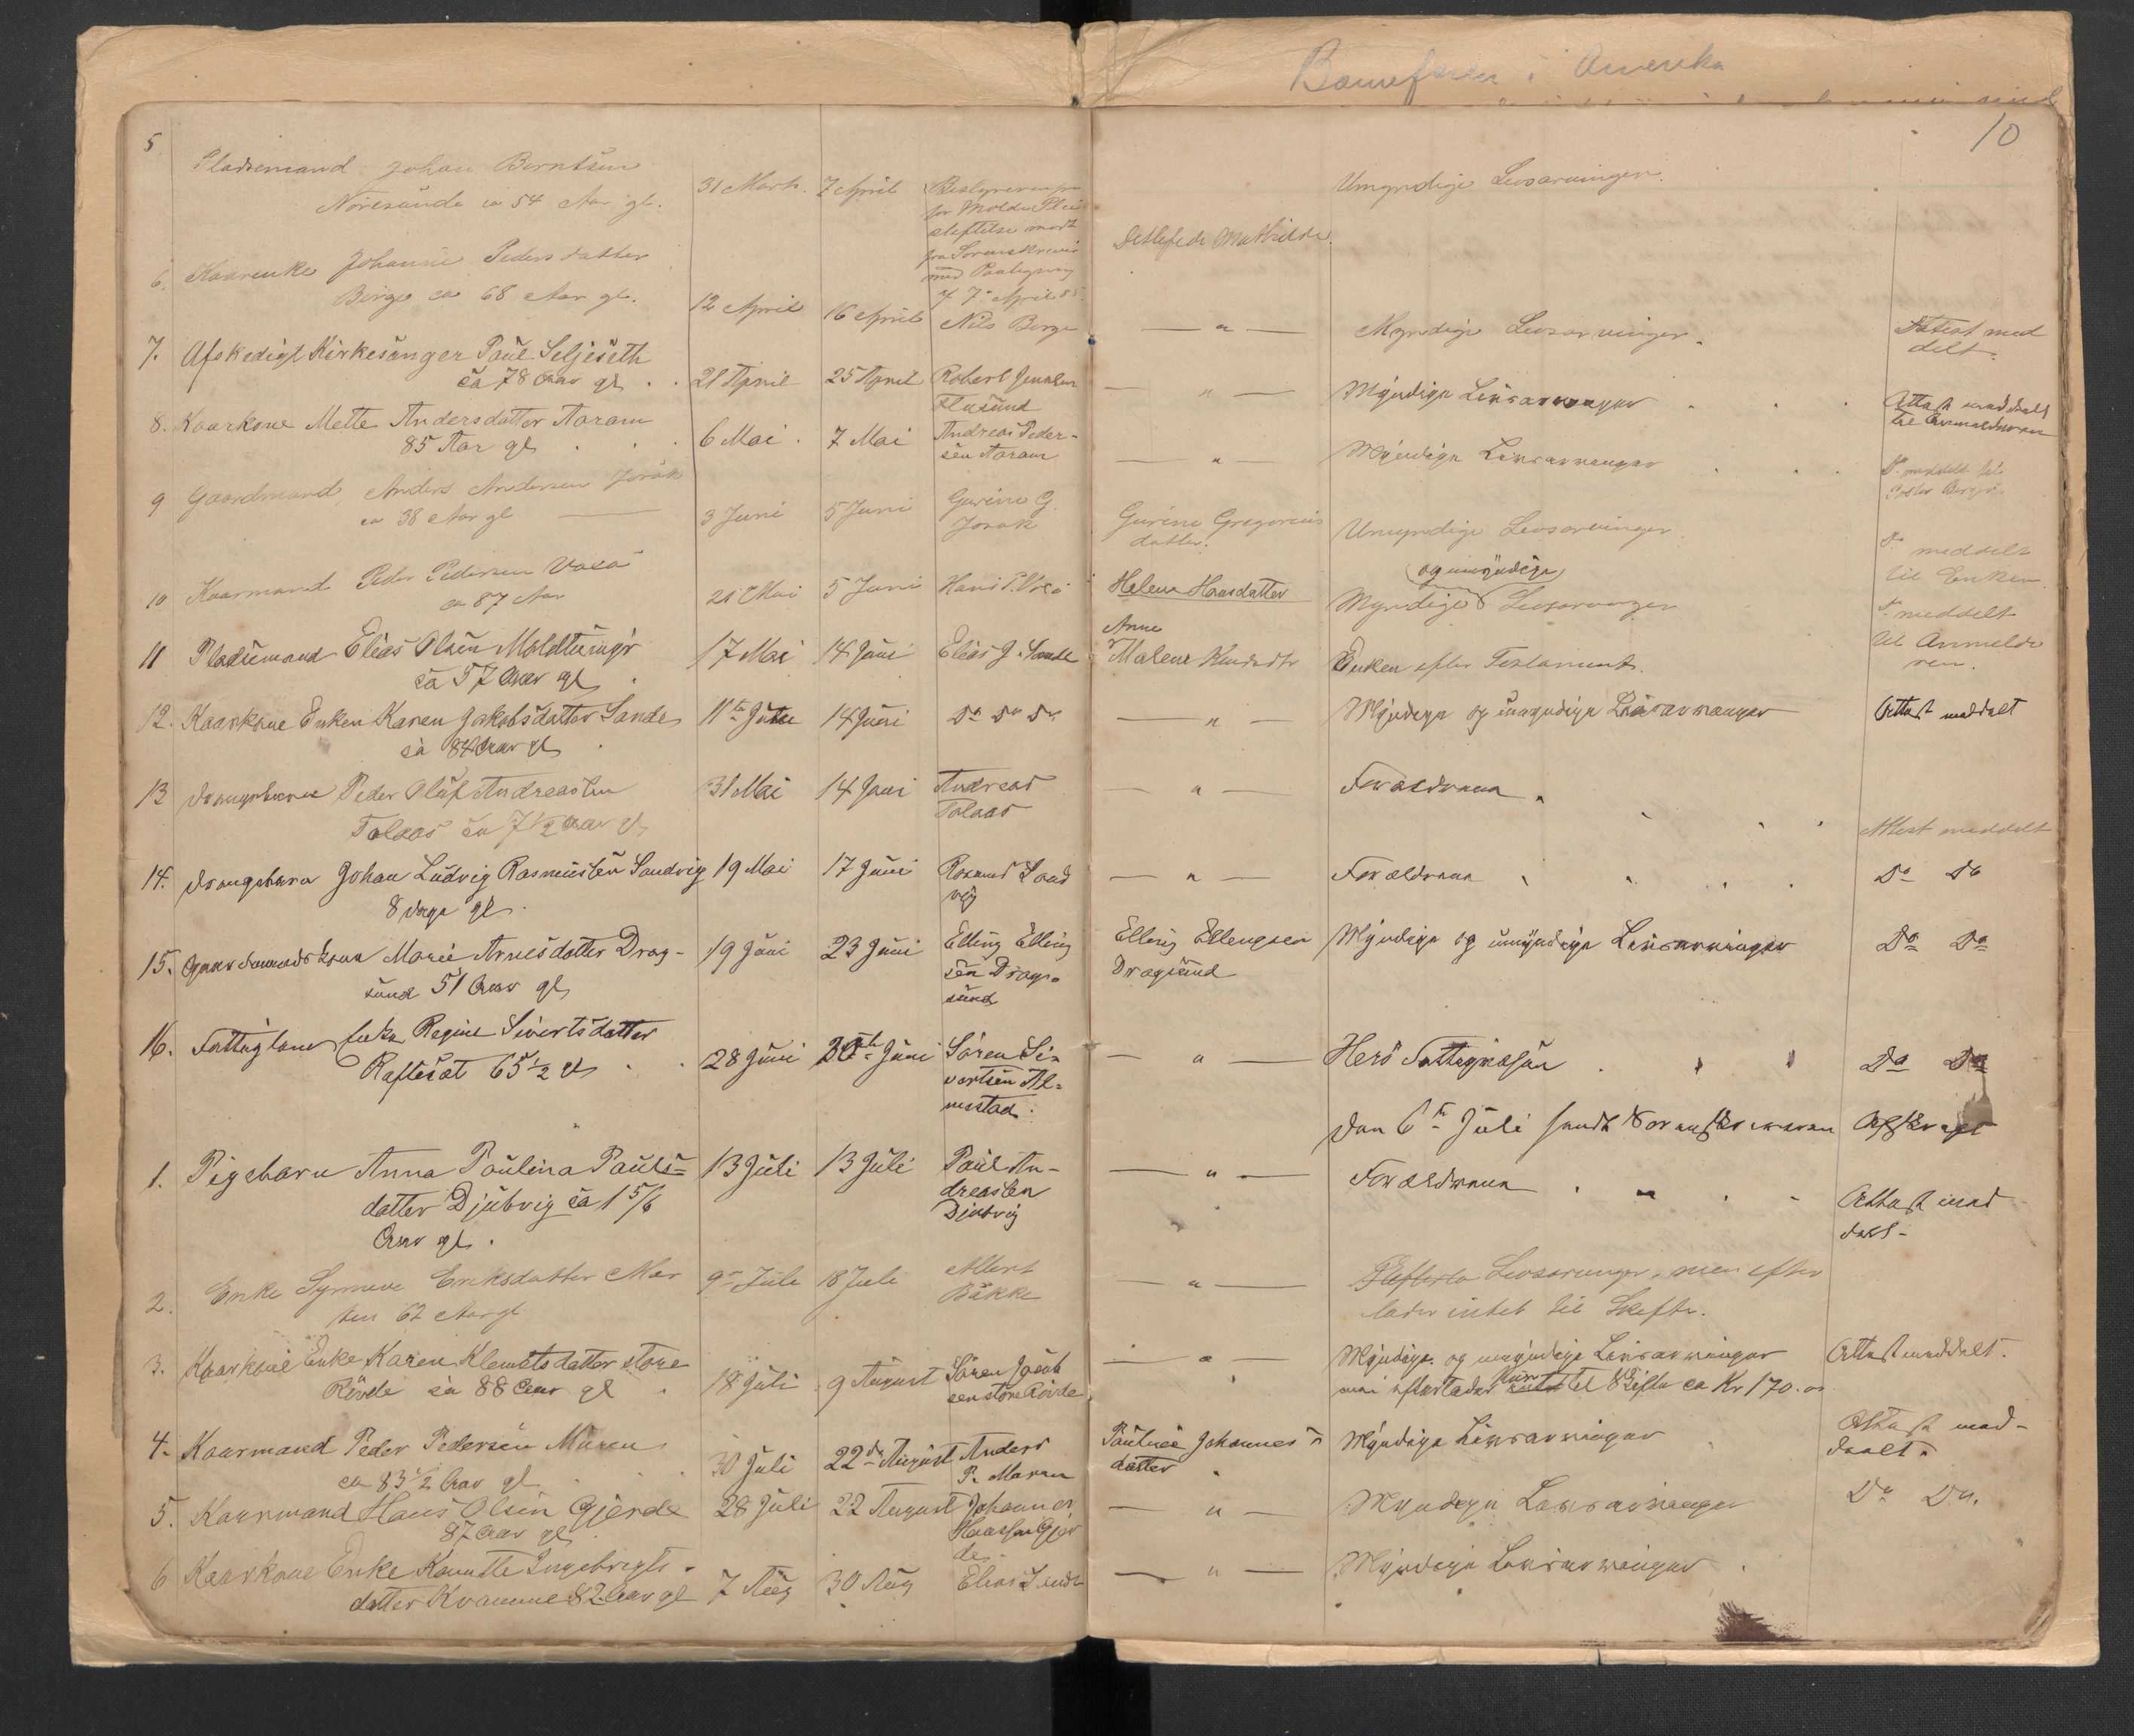 i Amerika
10
5 Pladsemand Johan Berntsen
Nöresunde ca 54 Aar gl.
31 Marts. 7 April
for Molde
med
7 April 85
Umyndige Livsarvinger.
Mathilde
6. Kaarenke Johanne Pedersdatter
Berge ca 68 Aar gl.
12 April 16 April Nils Berge
— " — Myndige Livsarvinger. Attest med
delt.
7. Afskediget Kirkesanger Paul Seljeseth
ca 78 Aar gl.
21 April 25 April Robert
— " — Myndige Livsarvinger
Attest meddelt
til Anmelderen
8. Kaarkone Mette Andersdatter Aaram
85 Aar gl
6 Mai. 7 Mai Andreas Peder-
sen Aaram
— " — Myndige Livsarvinger
Do meddelt
9 Gaardmand Anders Andersen Jösok
ca 38 Aar gl
3 Juni 5 Juni Gurine G.
Gurine Gregorius
datter.
Umyndige Livsarvinger
Do meddelt
til Enken.
10 Kaarmand Peder Pedersen Vaxö
ca 87 Aar
21 Mai 5 Juni Hans P.
Helene Hansdatter
og umyndige
Myndige Livsarvinger
Do meddelt
til Anmelde
ren.
11 Pladsemand Elias Olsen Moldtungr
ca 57 Aar gl
17 Mai 14 Juni Elias J. Sande
Anne
Malene
Enken efter Testament.
12. Kaarkone Enken Karen Jakobsdatter Sande
ca 84 Aar gl
11te Juni 14 Juni Do Do Do
— " — Myndige og umyndige Livsarvinger Attest meddelt
13 Drengebarn Peder Oluf Andreassen
Tolaas ca 7½ Aar gl
31 Mai 14 Juni Andreas
Tolaas
— " — Forældrene
Attest meddelt
14. Drengebarn Johan Ludvig Rasmussen Sandvig
8 Dage gl.
19 Mai 17 Juni Rasmus Sand
vig
— " — Forældrene Do Do
15. Gaardmandskone Marie Arnesdatter Drag-
sund 51 Aar gl
19 Juni 23 Juni Elling Elling
sen Drag-
sund
Elling Ellingsen
Dragsund
Myndige og umyndige Livsarvinger Do Do
16. Fattiglem Enke Regine Sivertsdatter
Raftesæt 65½ gl
28 Juni 30te Juni Sören Si-
vertsen Al-
mestad.
— " — Herö Fattigkasse Do Do
Den 6te Juli sendt Sorenskriveren Afskrift
1. Pigebarn Anna Paulina Pauls-
datter Djubvig ca 1 5/6
Aar gl.
13 Juli 13 Juli Paul An-
dreassen
Djubvig
— " — Forældrene
Attest med
delt.
2. Enke Synneve Eriksdatter Mor
ken 62 Aar gl
9de Juli 18 Juli Albert
Bakke
— " — Livsarvinger, men efter
lader intet til Skifte.
3. Kaarkone Enke Karen Klemetsdatter store
Rövde ca 88 Aar gl
18 Juli 9 August Sören Jacob
sen store Rövde
— " — Myndige og umyndige Livsarvinger Attest meddelt.
men efterlader kun til Skifte ca Kr 170.
4. Kaarmand Peder Pedersen Muren
ca 83½ Aar gl
30 Juli 22de August Anders
P. Muren
Pauline Johannes
datter
Myndige Livsarvinger
Attest med-
deelt.
5. Kaarmand Hans Olsen Gjerde
87 Aar gl
28 Juli 22 August Johannes
Hanssen Gjer
de.
— " — Myndige Livsarvinger Do Do.
6 Kaarkone Enke Karntte Ingebrigts-
datter Kvamme 82 Aar gl
7 Aug 30 Aug Elias Sande
— " — Myndige Livsarvinger